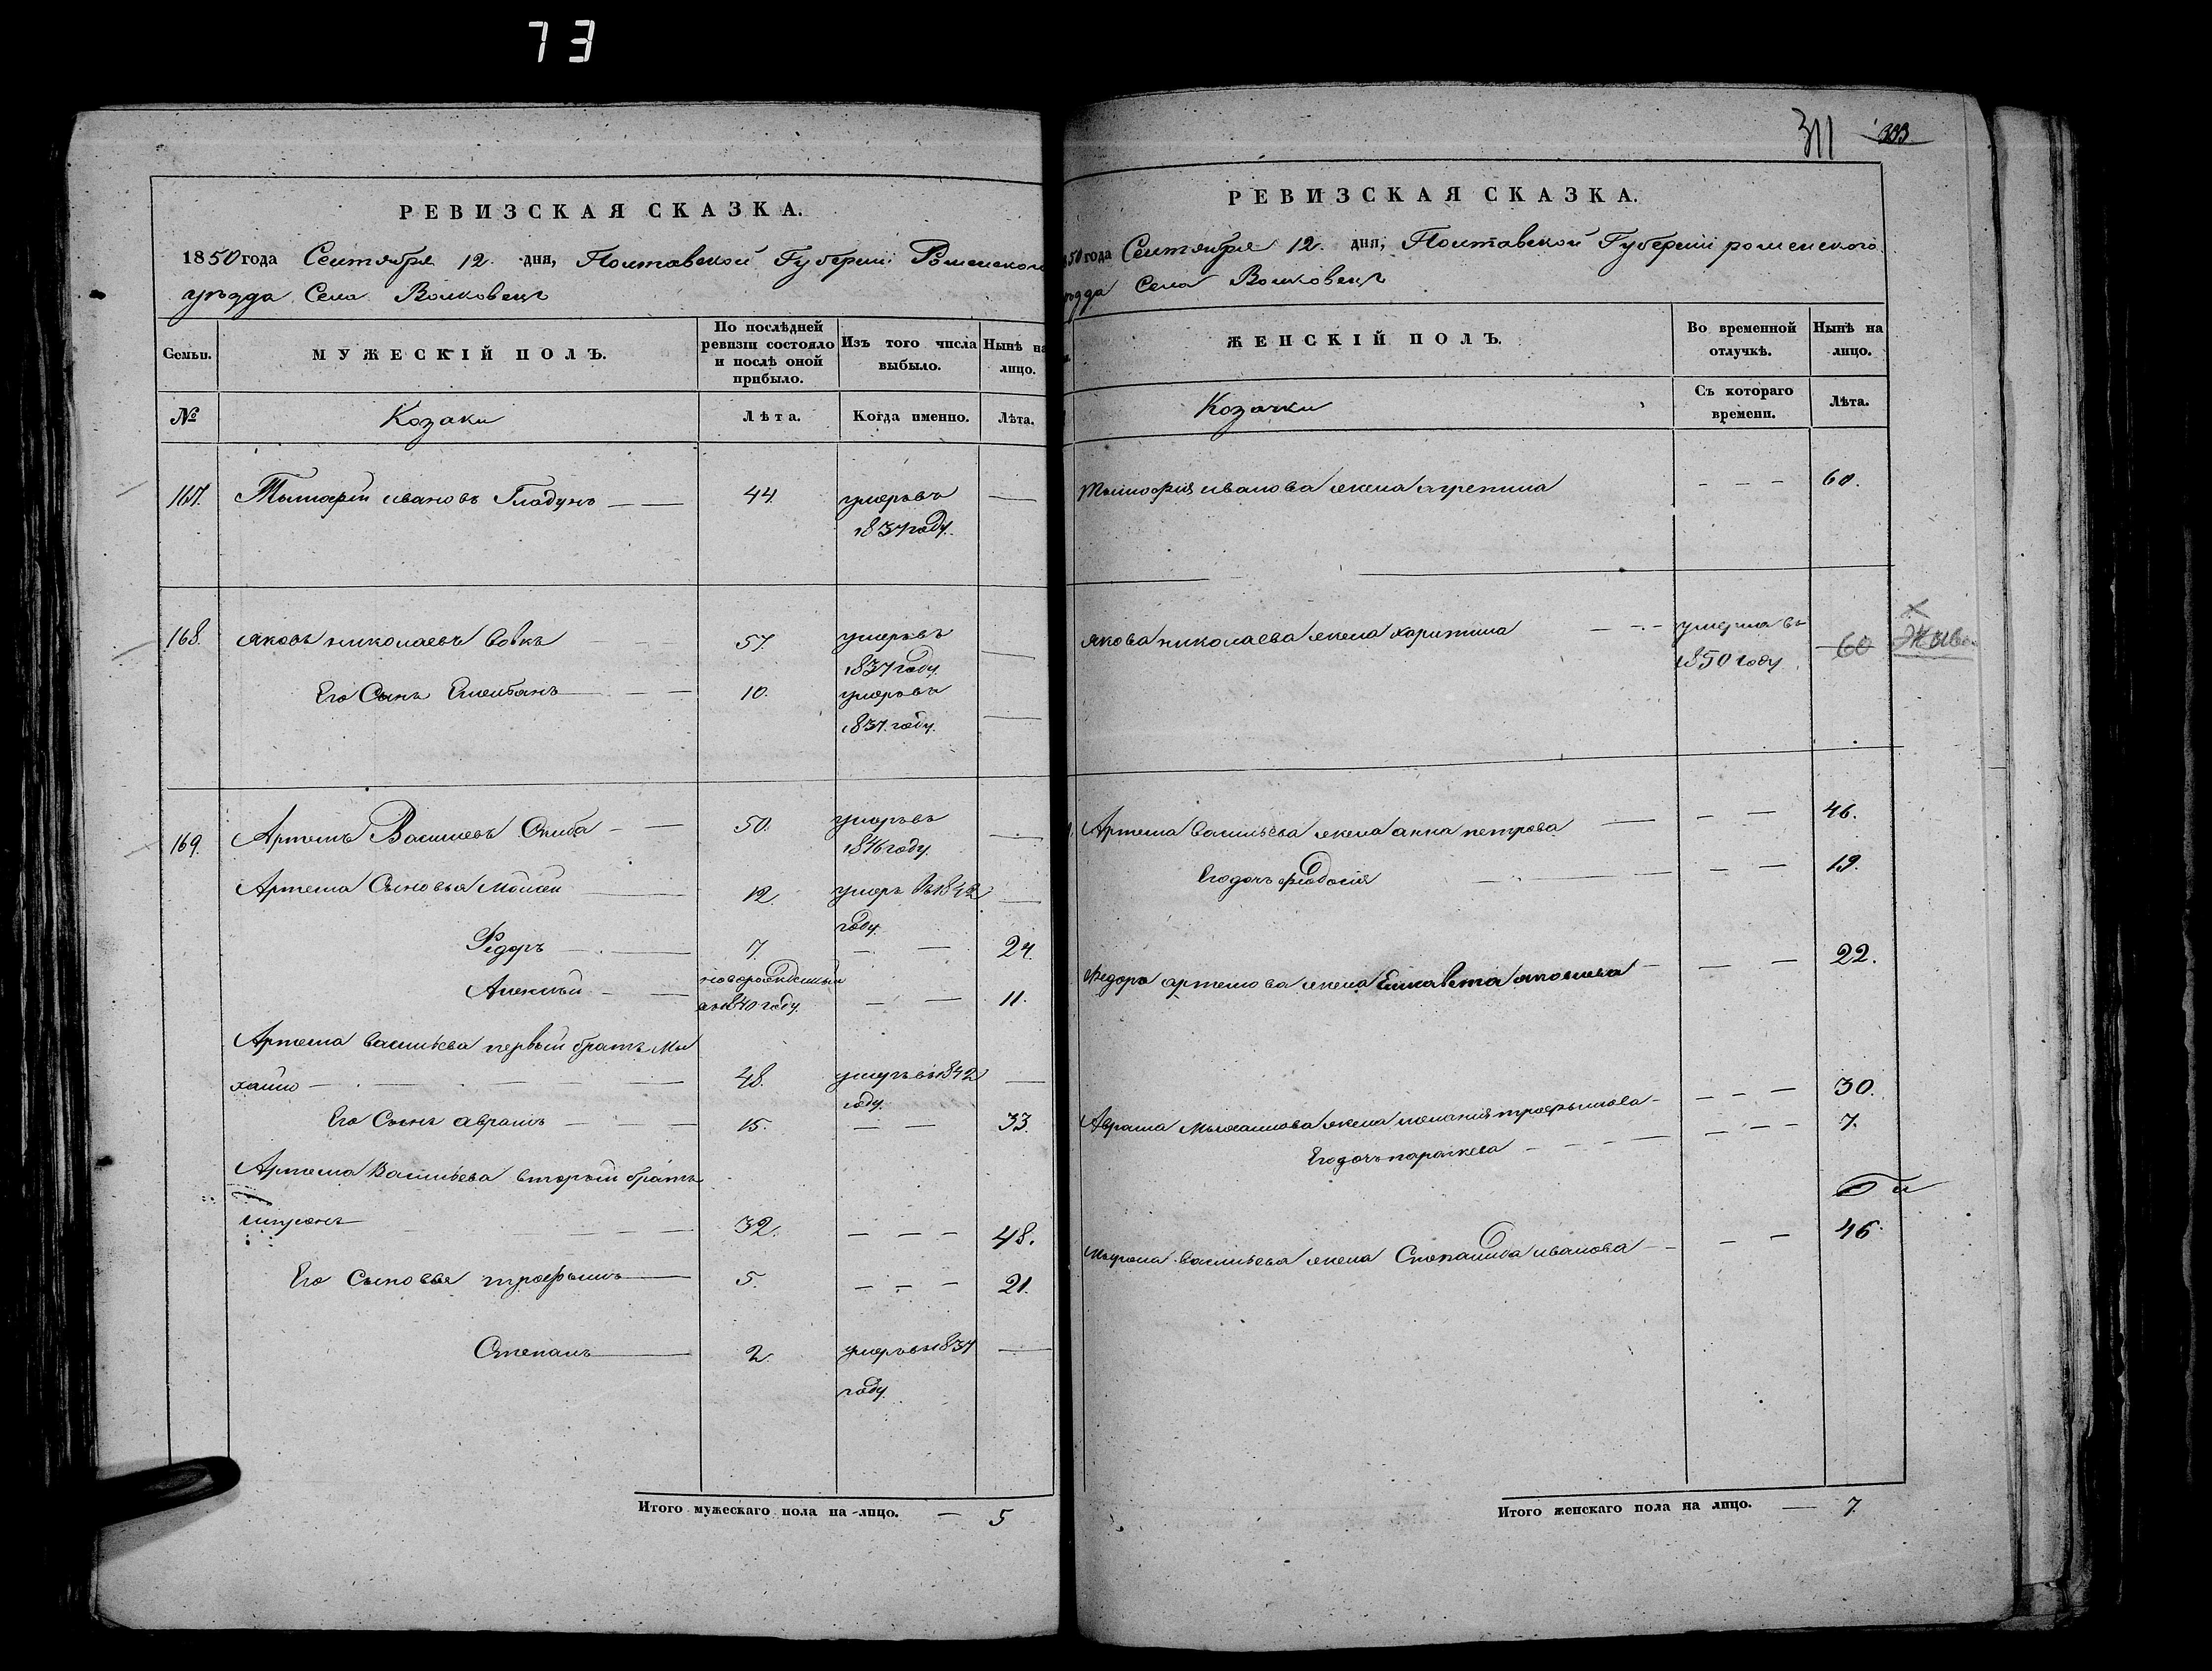 73
РЕВИЗСКАЯ СКАЗКА.
1850 года Сентября 12 дня, Полтавской Губернии Роменского
уѣзда Села Волковецъ
Семьи.
МУЖЕСКІЙ ПОЛЪ.
По послѣдней ревизіи состояло и послѣ оной прибыло.
Изъ того числа выбыло.
Нынѣ на лицо.
№
Козаки
Лѣта.
Когда именно.
Лѣта.
167. ивановъ Гладунъ 44 умеръ въ
1837 году.
168. Яковъ николаевъ Вовкъ 57. умеръ въ
1837 году.
Его Сынъ Емельянъ 10. умеръ въ
1837. году.
169. Артемъ Василіевъ 50. умеръ въ
1846 году.
Артема Сыновья Мойсей 12. умеръ въ 1842
году.
Федоръ 7. 24.
Алексѣй новорожденный
въ 1840 году. 11.
Артема васильева первый братъ Мы
хайло 48. умеръ въ 1842
году.
Его Сынъ аврамъ 15. 33.
Артема Васильева вторый братъ
32. 48.
Его Сыновья трофымъ 5. 21.
Степанъ 2. умеръ въ 1837
году.
Итого мужескаго пола на-лицо. — 5
311 333
РЕВИЗСКАЯ СКАЗКА.
1850 года Сентября 12. дня, Полтавской Губерніи роменского
уѣзда Села Волковецъ
ЖЕНСКІЙ ПОЛЪ.
Во временной отлучкѣ.
Нынѣ на лицо.
Козачки
Съ котораго времени.
Лѣта.
ивановa жена агрепина 60.
Якова николаева жена харитина умерла въ
1850 году 60
Артема васильева жена анна петрова 46.
Его дочь феодосія 19.
Федора артемова жена Елисавета 22.
Аврама Мыхайлова жена меланія трофымова 30.
Его дочь параскева 7.
васильева жена иванова 46.
Итого женскаго пола на лицо. — 7.